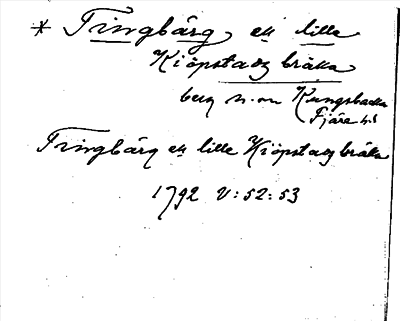 * Tingbärg ett lille
Kiöpstadz bråka
berg n. om Kungsbacka
Fjäre hd
Tingbärg ett lille Kiöpstadz bråka
1792 V:52:53